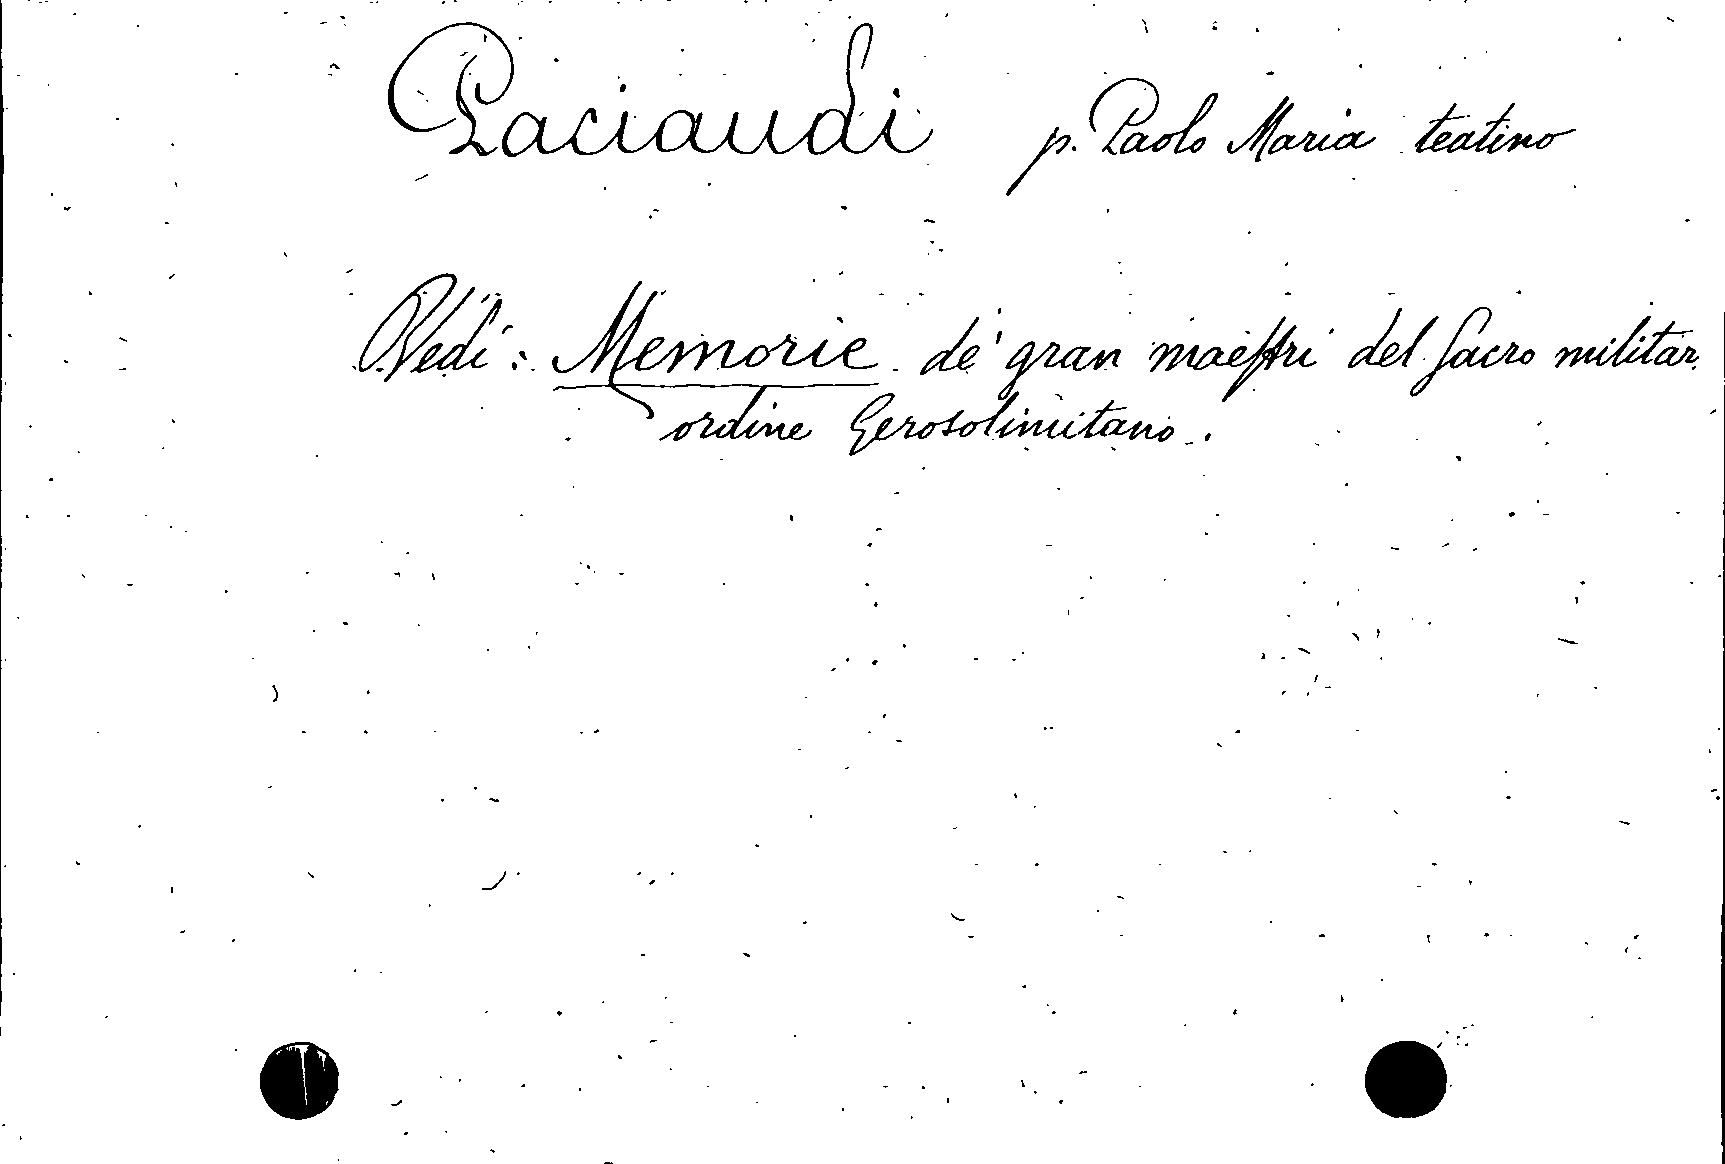 Paciaudi p. Paolo Maria teatino
Vedi: Memorie de' gran maestri del sacro militar
ordine Gerosolimitano.